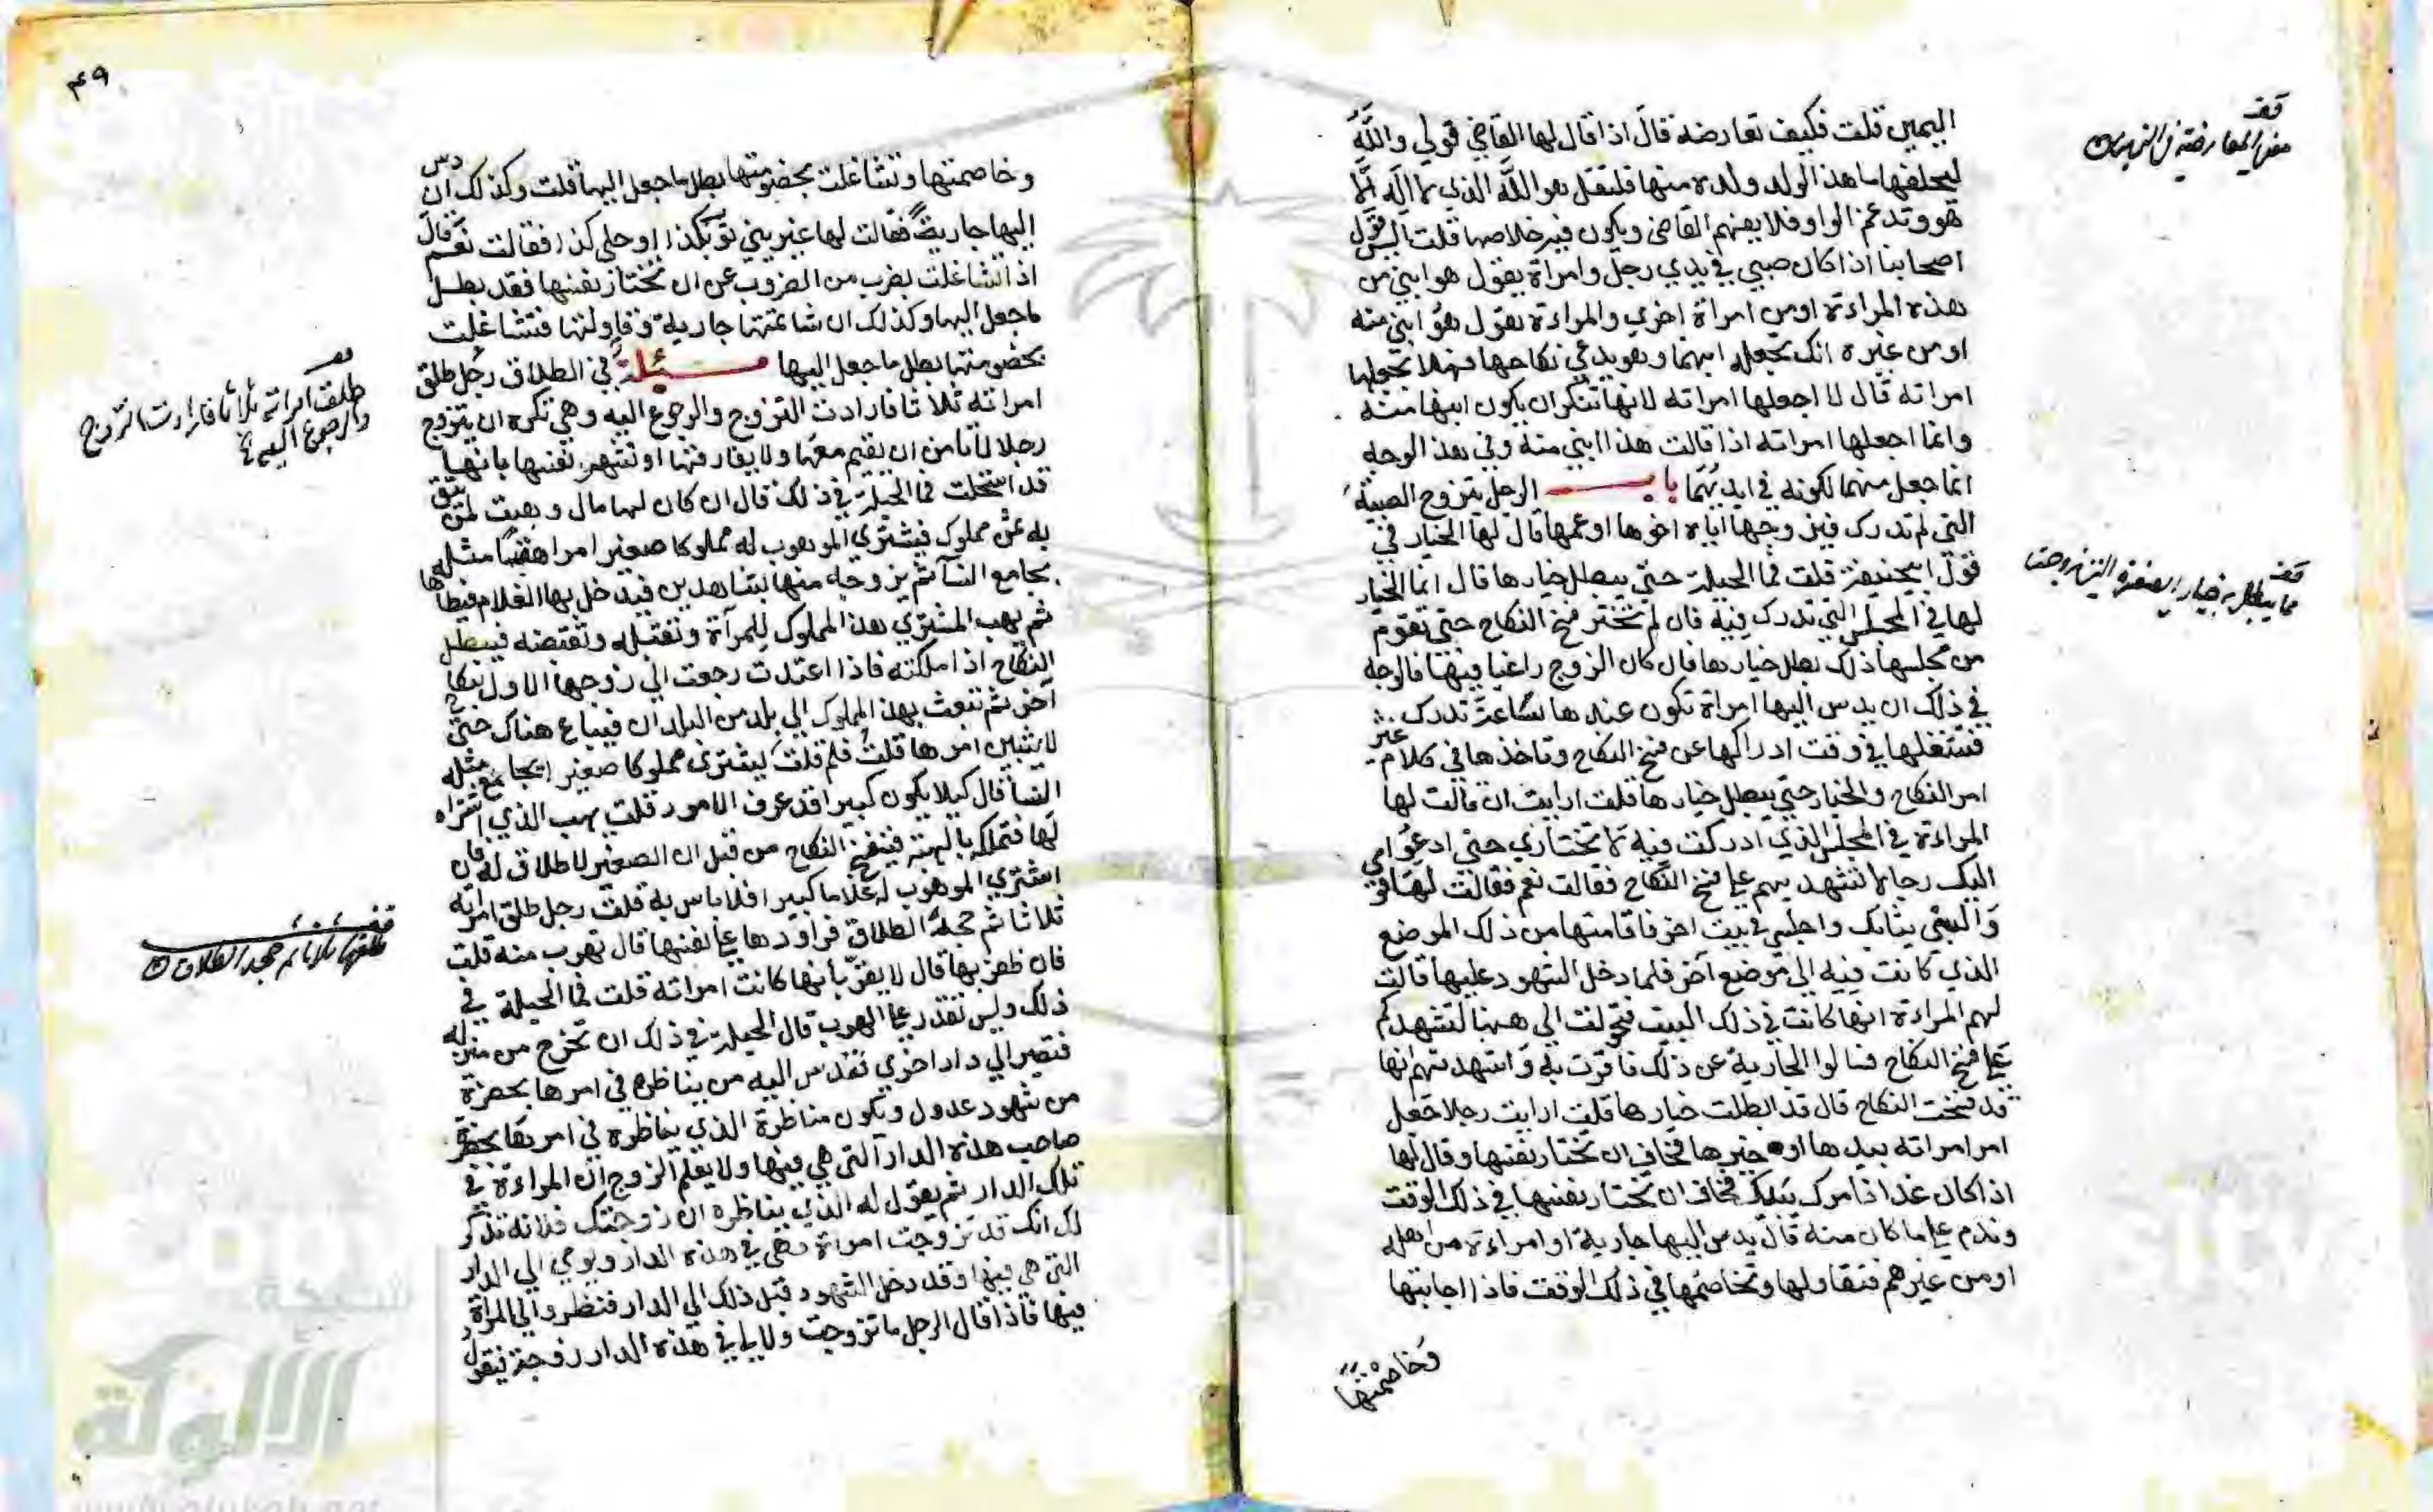 اليمين قلت فكيف تعارضه قال اذا قال لها القاضي قولي والله
ليحلفها ما هذا الولد ولده منها فلتقل هو الله الذي لا اله الا
هو وتدغم الواو فلا يفهم القاضي ويكون فيه خلاصها قلت اليس يقول
اصحابنا اذا كان صبي في يدي رجل وامراة يقول هو ابني من
هذه المراءة او من امراة اخرى والمراءة تقول هو ابني منه
او من غيره انك تجعله ابنهما وهو يدعي نكاحها فهلا تجعلها
امراته قال لا اجعلها امراته لانها تنكر ان يكون ابنها منه
وانما اجعلها امراته اذا قالت هذا ابني منه وفي هذا الوجه
انما جعل منهما لكونه في ايديهما باب الرجل يتزوج الصبية
التي لم تدرك فيزوجها اياه اخوها او عمها قال لها الخيار في
قول ابي حنيفة قلت فما الحيلة حتى يبطل خيارها قال انما الخيار
لها في المجلس التي تدرك فيه فان لم تختر فسخ النكاح حتى تقوم
من مجلسها ذلك بطل خيارها فان كان الزوج راغبا فيها فالوجه
في ذلك ان يدس اليها امراة تكون عندها ساعة تدرك
فتشغلها في وقت ادراكها عن فسخ النكاح وتاخذها في كلام غير
امر النكاح والخيار حتى يبطل خيارها قلت ارايت ان قالت لها
المراءة في المجلس الذي ادركت فيه لا تختاري حتى ادعو
اليك رجالا تشهديهم على فسخ النكاح فقالت نعم فقالت لها قومي
والبسي ثيابك واجلسي في بيت اخر فاقامتها من ذلك الموضع
الذي كانت فيه الى موضع آخر فلما دخل الشهود عليها قالت
لهم المراءة انها كانت في ذلك البيت فتحولت الى ههنا لتشهدكم
على فسخ النكاح فسالوا الجارية عن ذلك فاقرت به واشهدتهم انها
قد فسخت النكاح قال قد ابطلت خيارها قلت ارايت رجلا جعل
امر امراته بيدها او خيرها فخاف ان تختار نفسها وقال لها
اذا كان غدا فامرك بيدك فخاف ان تختار نفسها في ذلك الوقت
وندم على ما كان منه قال يدس اليها جارية او امراءة من اهله
او من غيرهم فتقاولها وتخاصمها في ذلك الوقت فاذا اجابتها
وخاصمتها
قف
قف
ما يبطل به خيار الصغيرة التي زوجت
٤٩
وخاصمتها وتشاغلت بخصومتها بطل ما جعل اليها قلت وكذلك ان دس
اليها جارية فقالت لها عيريني ثوبك كذا او حلي كذا فقالت نعم قال
اذا تشاغلت بضرب من الضروب عن ان تختار نفسها فقد بطل
ما جعل اليها وكذلك ان شاتمتها جارية وقاولتها فتشاغلت
بخصومتها بطل ما جعل اليها مسئلة في الطلاق رجل طلق
امراته ثلاثا فارادت التزوج والرجوع اليه وهي تكره ان يتزوج
رجلا لا تامن ان تقيم معها ولا يفارقها او تشهر نفسها بانها
قد استحلت فما الحيلة في ذلك قال ان كان لها مال وهبت لمن تثق
به ثمن مملوك فيشتري الموهوب له مملوكا صغيرا مراهقا مثله
يجامع النسآ ثم يزوجه منها بشاهدين فيدخل بها الغلام فيطاها
ثم يهب المشتري هذا المملوك للمرآة وتقبله وتقبضه فيبطل
النكاح اذا ملكته فاذا اعتدت رجعت الى زوجها الاول بنكاح
آخر ثم تبعث بهذا المملوك الى بلد من البلدان فيباع هناك حتى
لا يتبين امرها قلت فلم قلت يشتري مملوكا صغيرا يجامع مثله
النسآ قال كيلا يكون كبيرا قد عرف الامور قلت يهب الذي اشتراه
لها فتملكه بالهبة فينفسخ النكاح من قبل ان الصغير لا طلاق له فان
اشترى الموهوب له غلاما كبيرا فلا باس به قلت رجل طلق امراته
ثلاثا ثم جحد الطلاق فراودها على نفسها قال تهرب منه قلت
فان ظفر بها قال لا يقر بانها كانت امراته قلت فما الحيلة في
ذلك وليس تقدر على الهرب قال الحيلة في ذلك ان تخرج من منزله
فتصير الى دار اخرى تدس اليه من يناظره في امرها بحضرة
من شهود عدول وتكون مناظرة الذي يناظره في امرها بحضرة
صاحب هذه الدار التي هي فيها ولا يعلم الزوج ان المراءة في
تلك الدار ثم يقول له الذي يناظره ان زوجتك فلانة تذكر
لك انك قد تزوجت امراة وهي في هذه الدار ويومي الى الدار
التي هي فيها وقد دخل الشهود قبل ذلك الى الدار فنظروا الى المراة
فيها فاذا قال الرجل ما تزوجت ولا لي في هذه الدار زوجة فيقول
قف
طلق امراته ثلاثا فارادت التزوج
والرجوع اليه
قف
طلقها ثلاثا ثم جحد الطلاق
شبكة
الألوكة